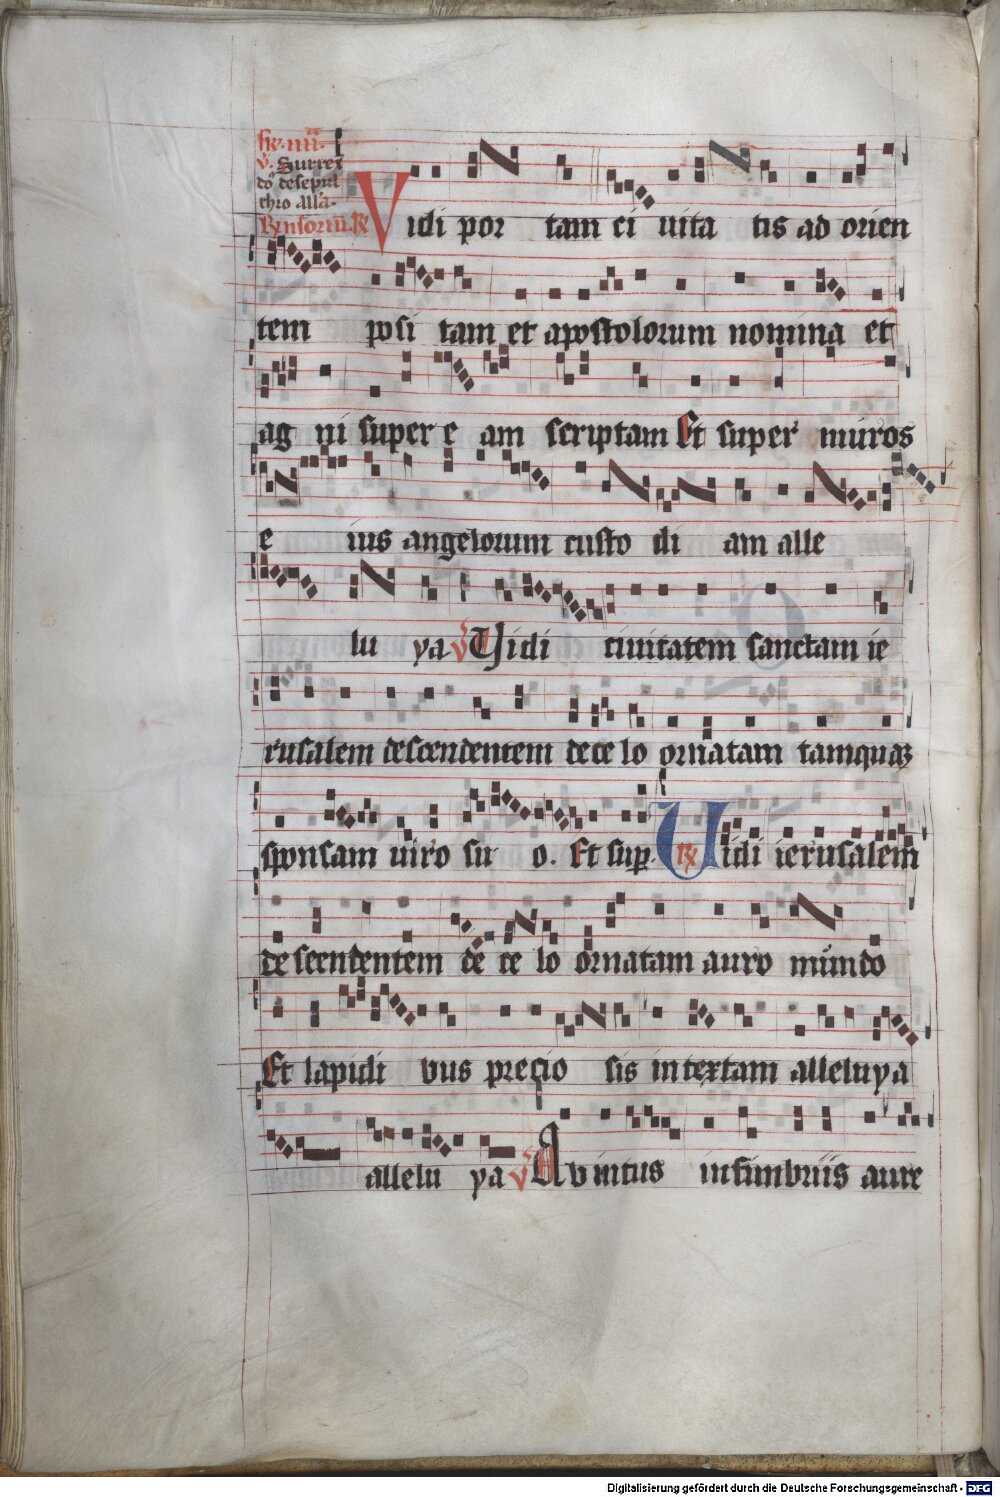 fr. iiii.
v. Surrex
do. de sepul
chro all'a.
Rnsoriu. R Vidi por tam ci uita tis ad orien
tem posi tam et apostolorum nomina et
ag ni super e am scriptam Et super muros
e ius angelorum custo di am alle
lu ya v Vidi ciuitatem sanctam ie
rusalem descendentem de ce lo ornatam tamquaz
sponsam uiro su o. Et sup. R Vidi ierusalem
de scendentem de ce lo ornatam auro mundo
Et lapidi bus precio sis in textam alleluya
allelu ya v Ab intus in fimbriis aure
Digitalisierung gefördert durch die Deutsche Forschungsgemeinschaft - DFG